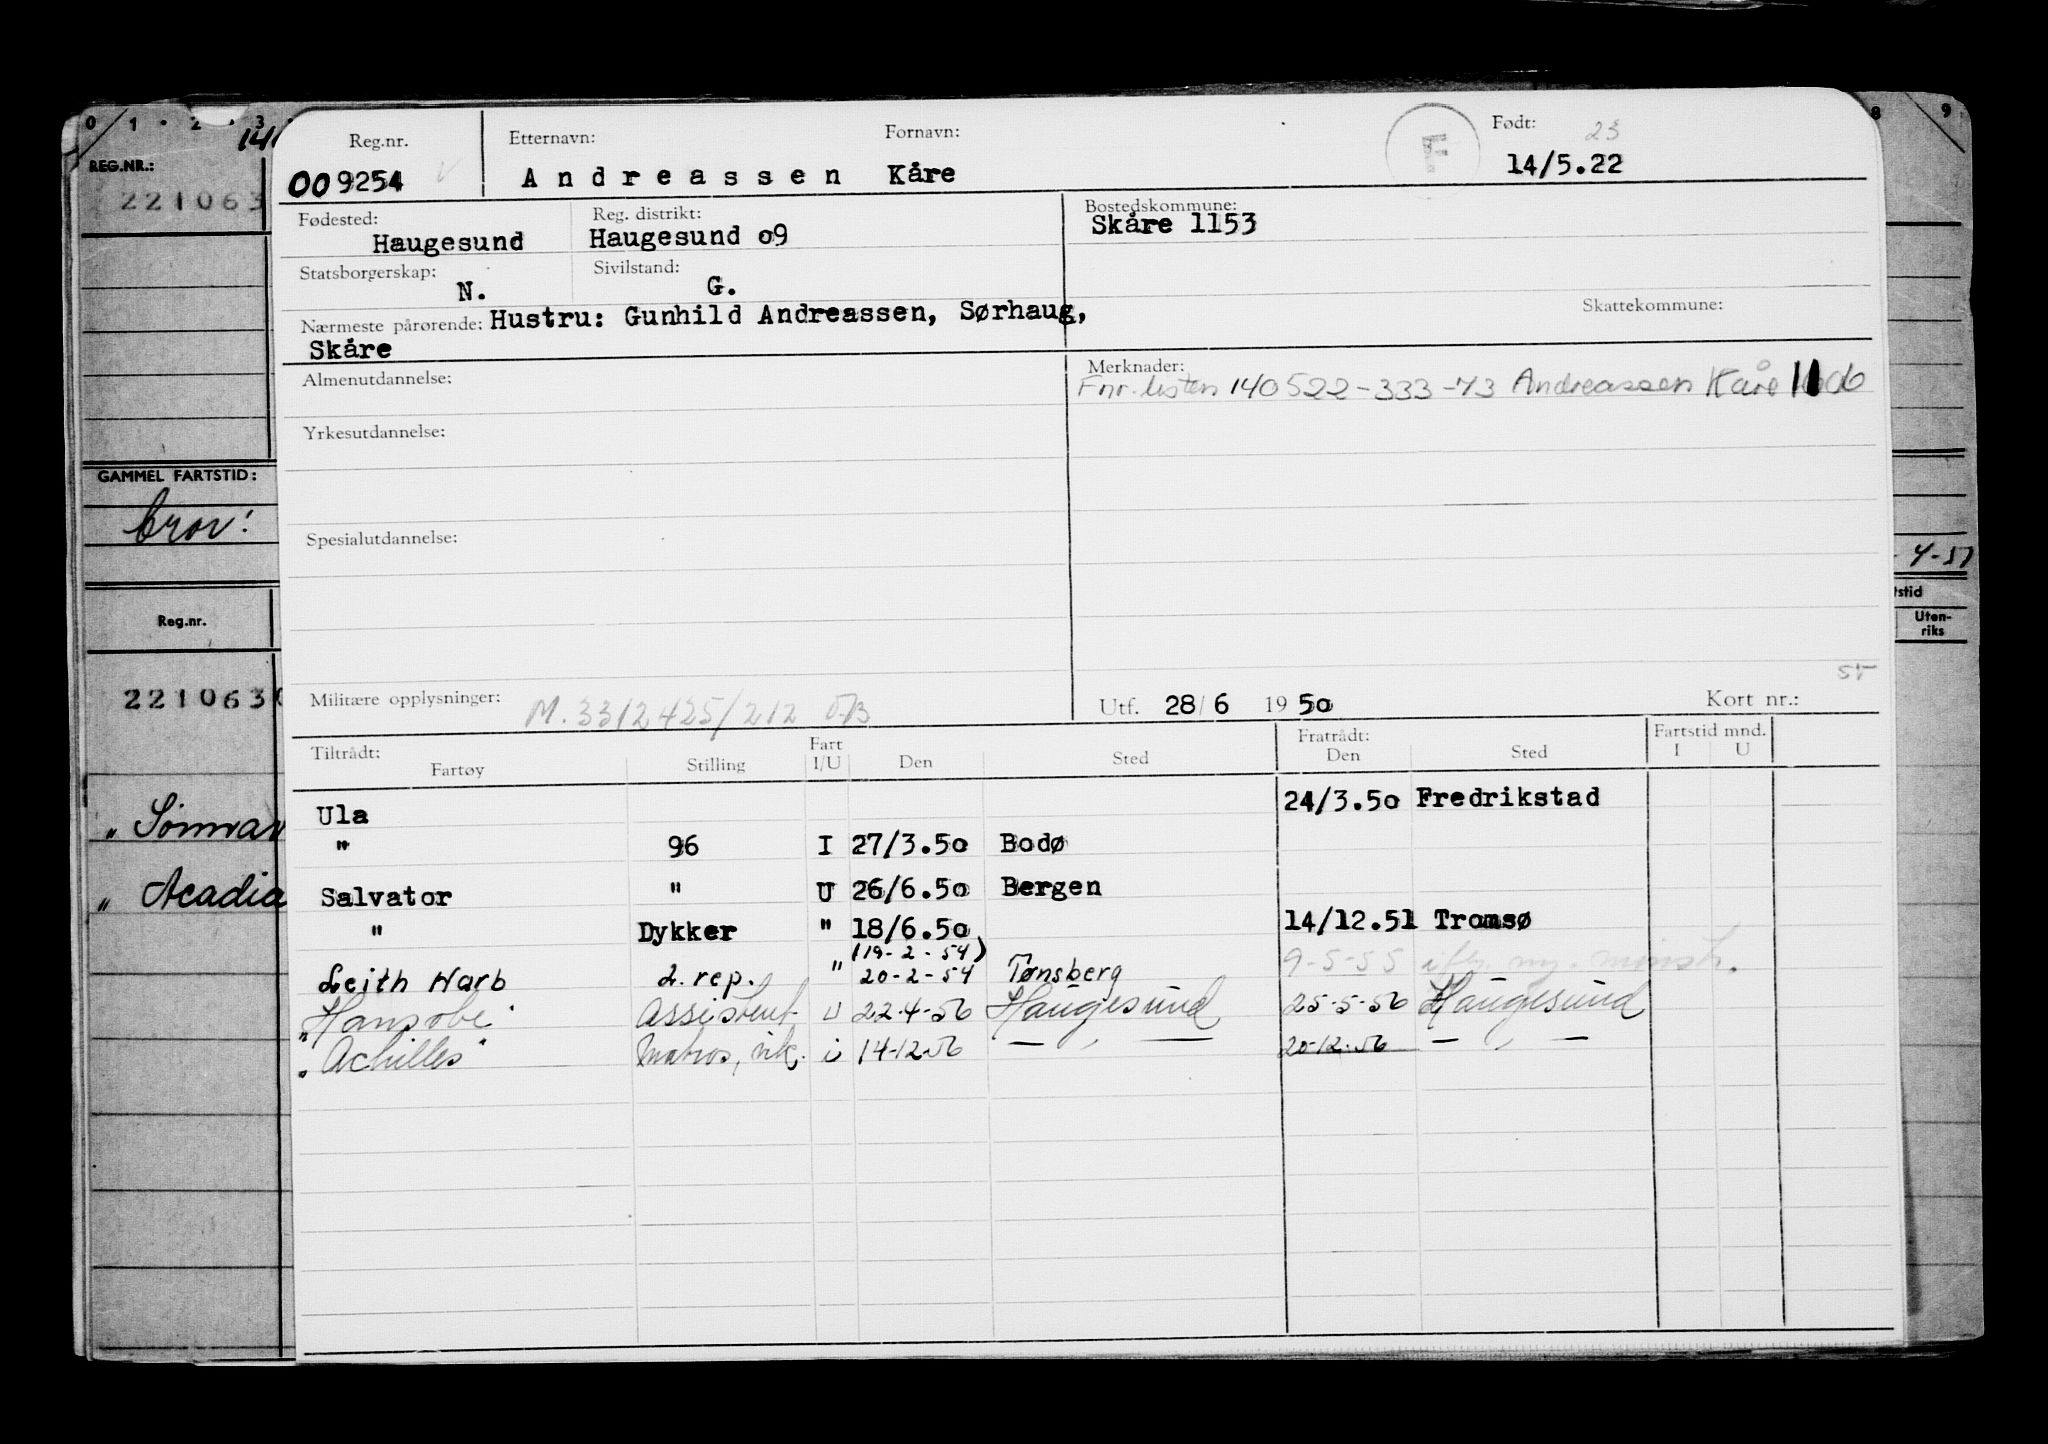 0 1 · 2 · 3 8 9
REG.NR.: 14
221063
GAMMEL FARTSTID:
brov!
Reg.nr.
221063
" Sömvar
" Acadia
- 4-51
tstid
Uten-
riks
Reg.nr. Etternavn: Fornavn: F Født: 23
009254 V Andreassen Kåre 14/5.22
Fødested: Reg. distrikt: Bostedskommune:
Haugesund Haugesund 09 Skåre 1153
Statsborgerskap: Sivilstand:
N. G.
Skattekommune:
Nærmeste pårørende: Hustru: Gunhild Andreassen, Sørhaug,
Skåre
Almenutdannelse: Merknader:
Fnr. listen 140522-333-73 Andreassen Kåre 1106
Yrkesutdannelse:
Spesialutdannelse:
ST
Militære opplysninger: M. 3312425/212 Utf. 28/6 1950 Kort nr.:
Tiltrådt: Fart Fratrådt: Fartstid mnd.
Fartøy Stilling I/U Den Sted Den Sted I U
Ula 24/3.50 Fredrikstad
" 96 I 27/3.50 Bodø
Salvator " U 26/6.50 Bergen
" Dykker " 18/6.50 14/12.51 Tromsø
(19-2-54)
Leith Harb 2. rep. " 20-2-54 Tønsberg 9-5-55 iflg. ny. mønstr.
"Hansobe" Assistent U 22-4-56 Haugesund 25-5-56 Haugesund
"Achilles" Matros, vik. i 14-12-56 — " — 20-12-56 — " —